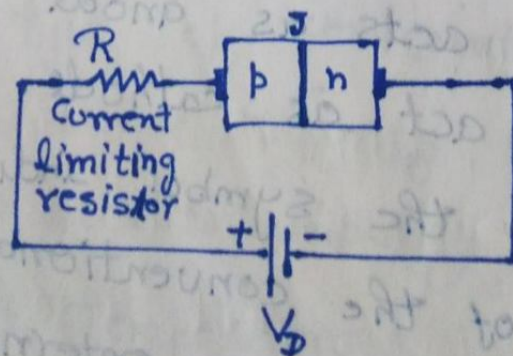 J
R
p n
Current
limiting
resistor
+ -
V_D